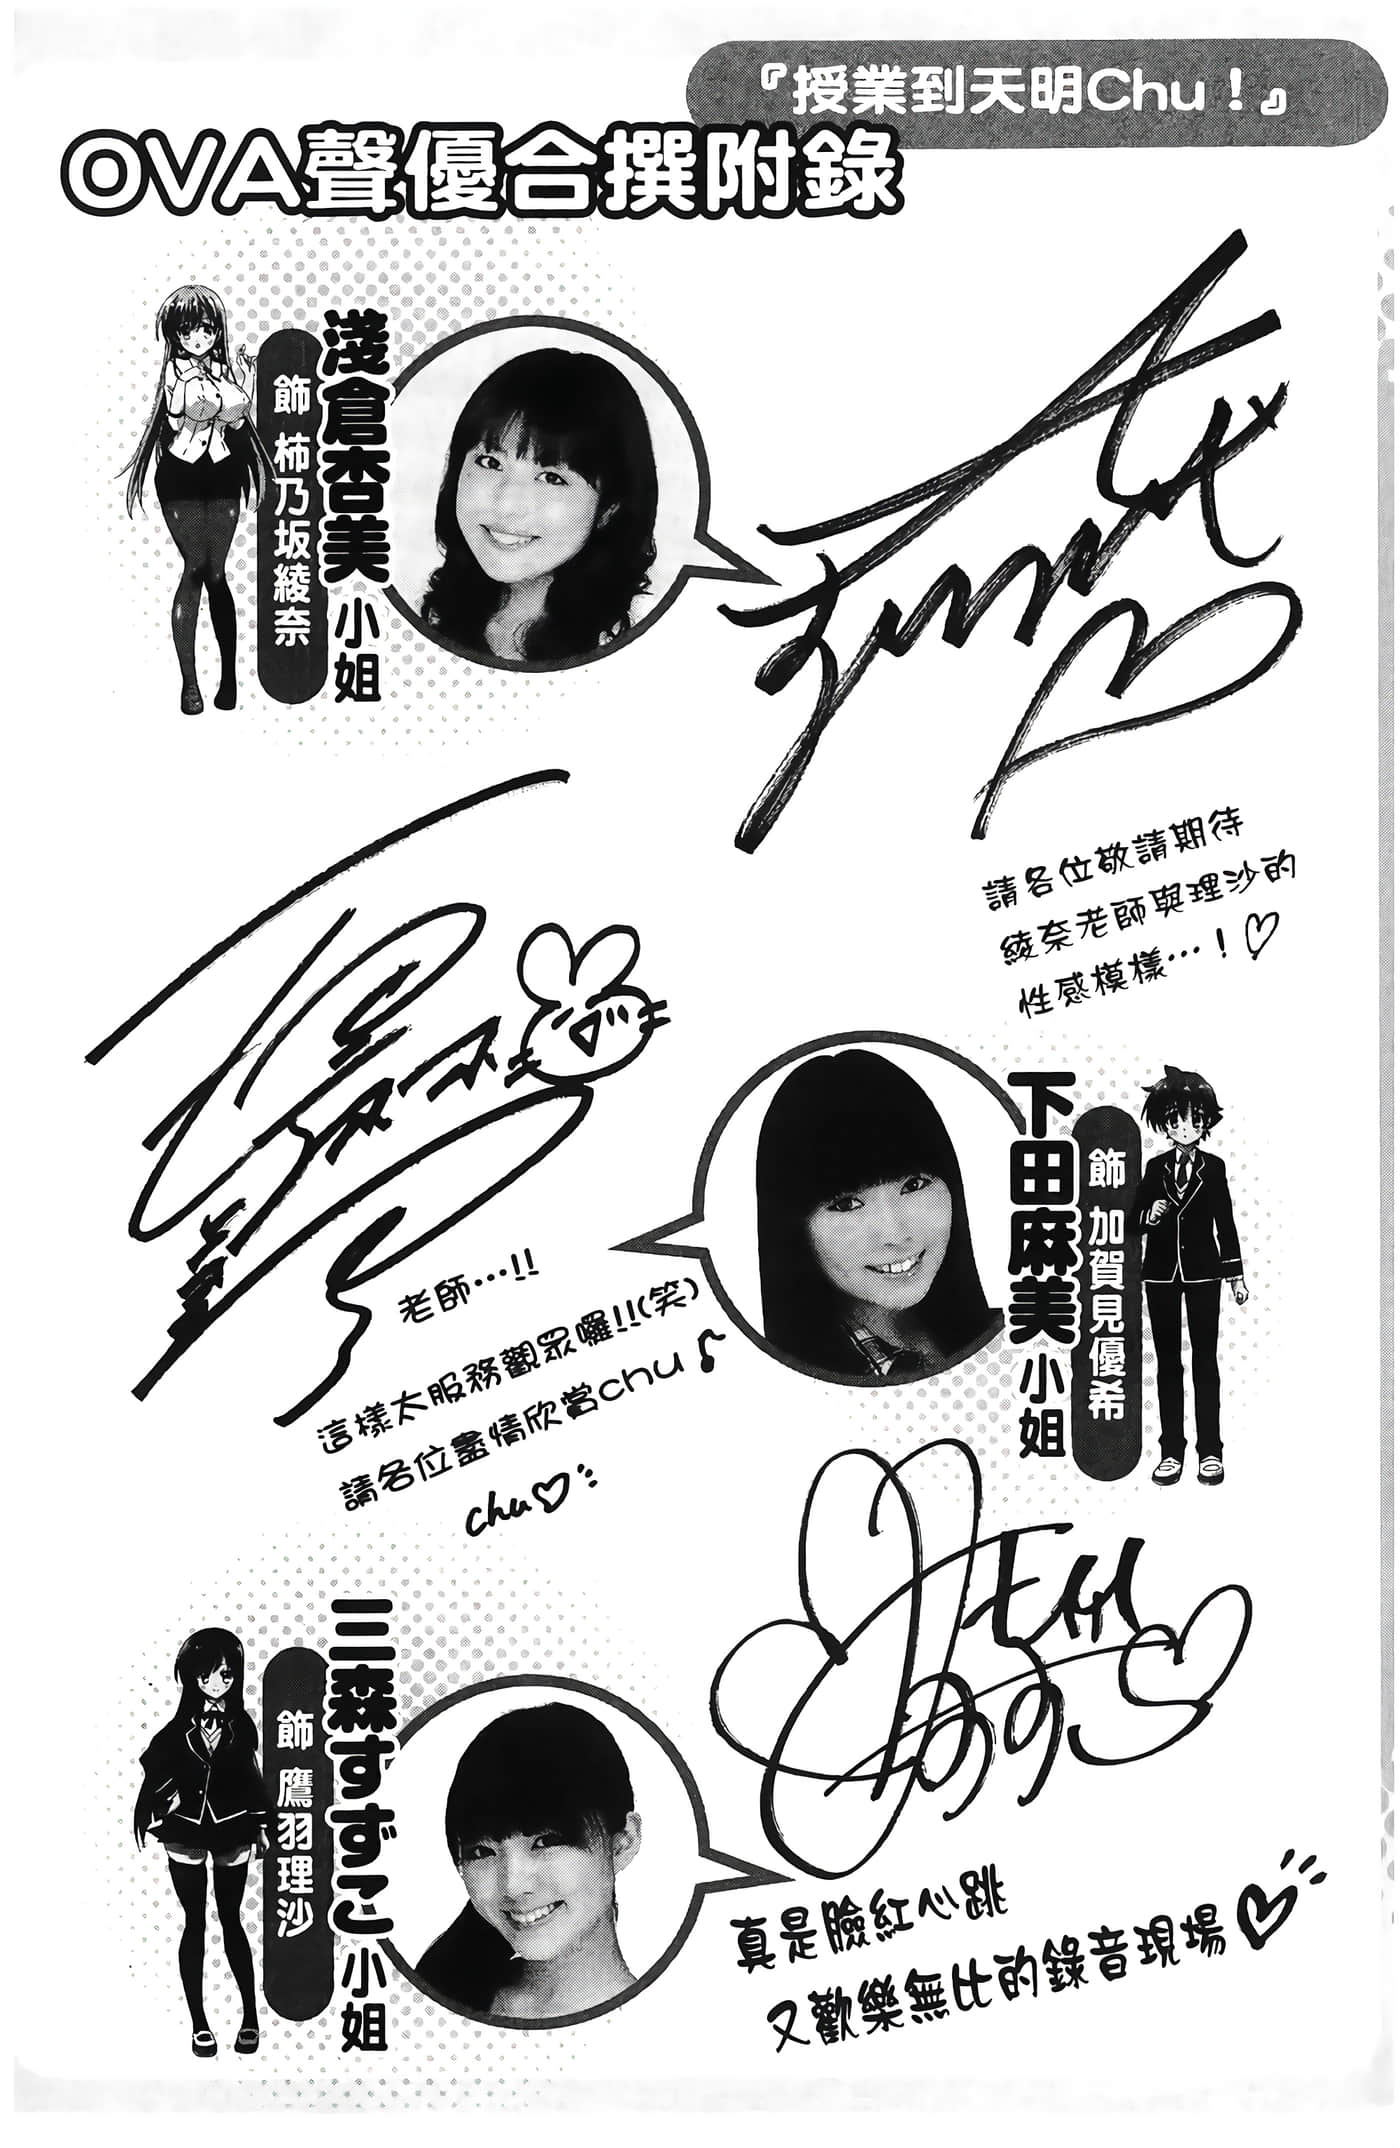 『授業到天明Chu！』
OVA聲優合撰附錄
淺倉杏美 小姐
飾 柿乃坂綾奈
請各位敬請期待
綾奈老師與理沙的
性感模樣…！♡
下田麻美 小姐
飾 加賀見優希
老師…!!
這樣太服務觀眾囉!!(笑)
請各位盡情欣賞chu♪
chu♡
三森すずこ 小姐
飾 鷹羽理沙
真是臉紅心跳
又歡樂無比的錄音現場♡